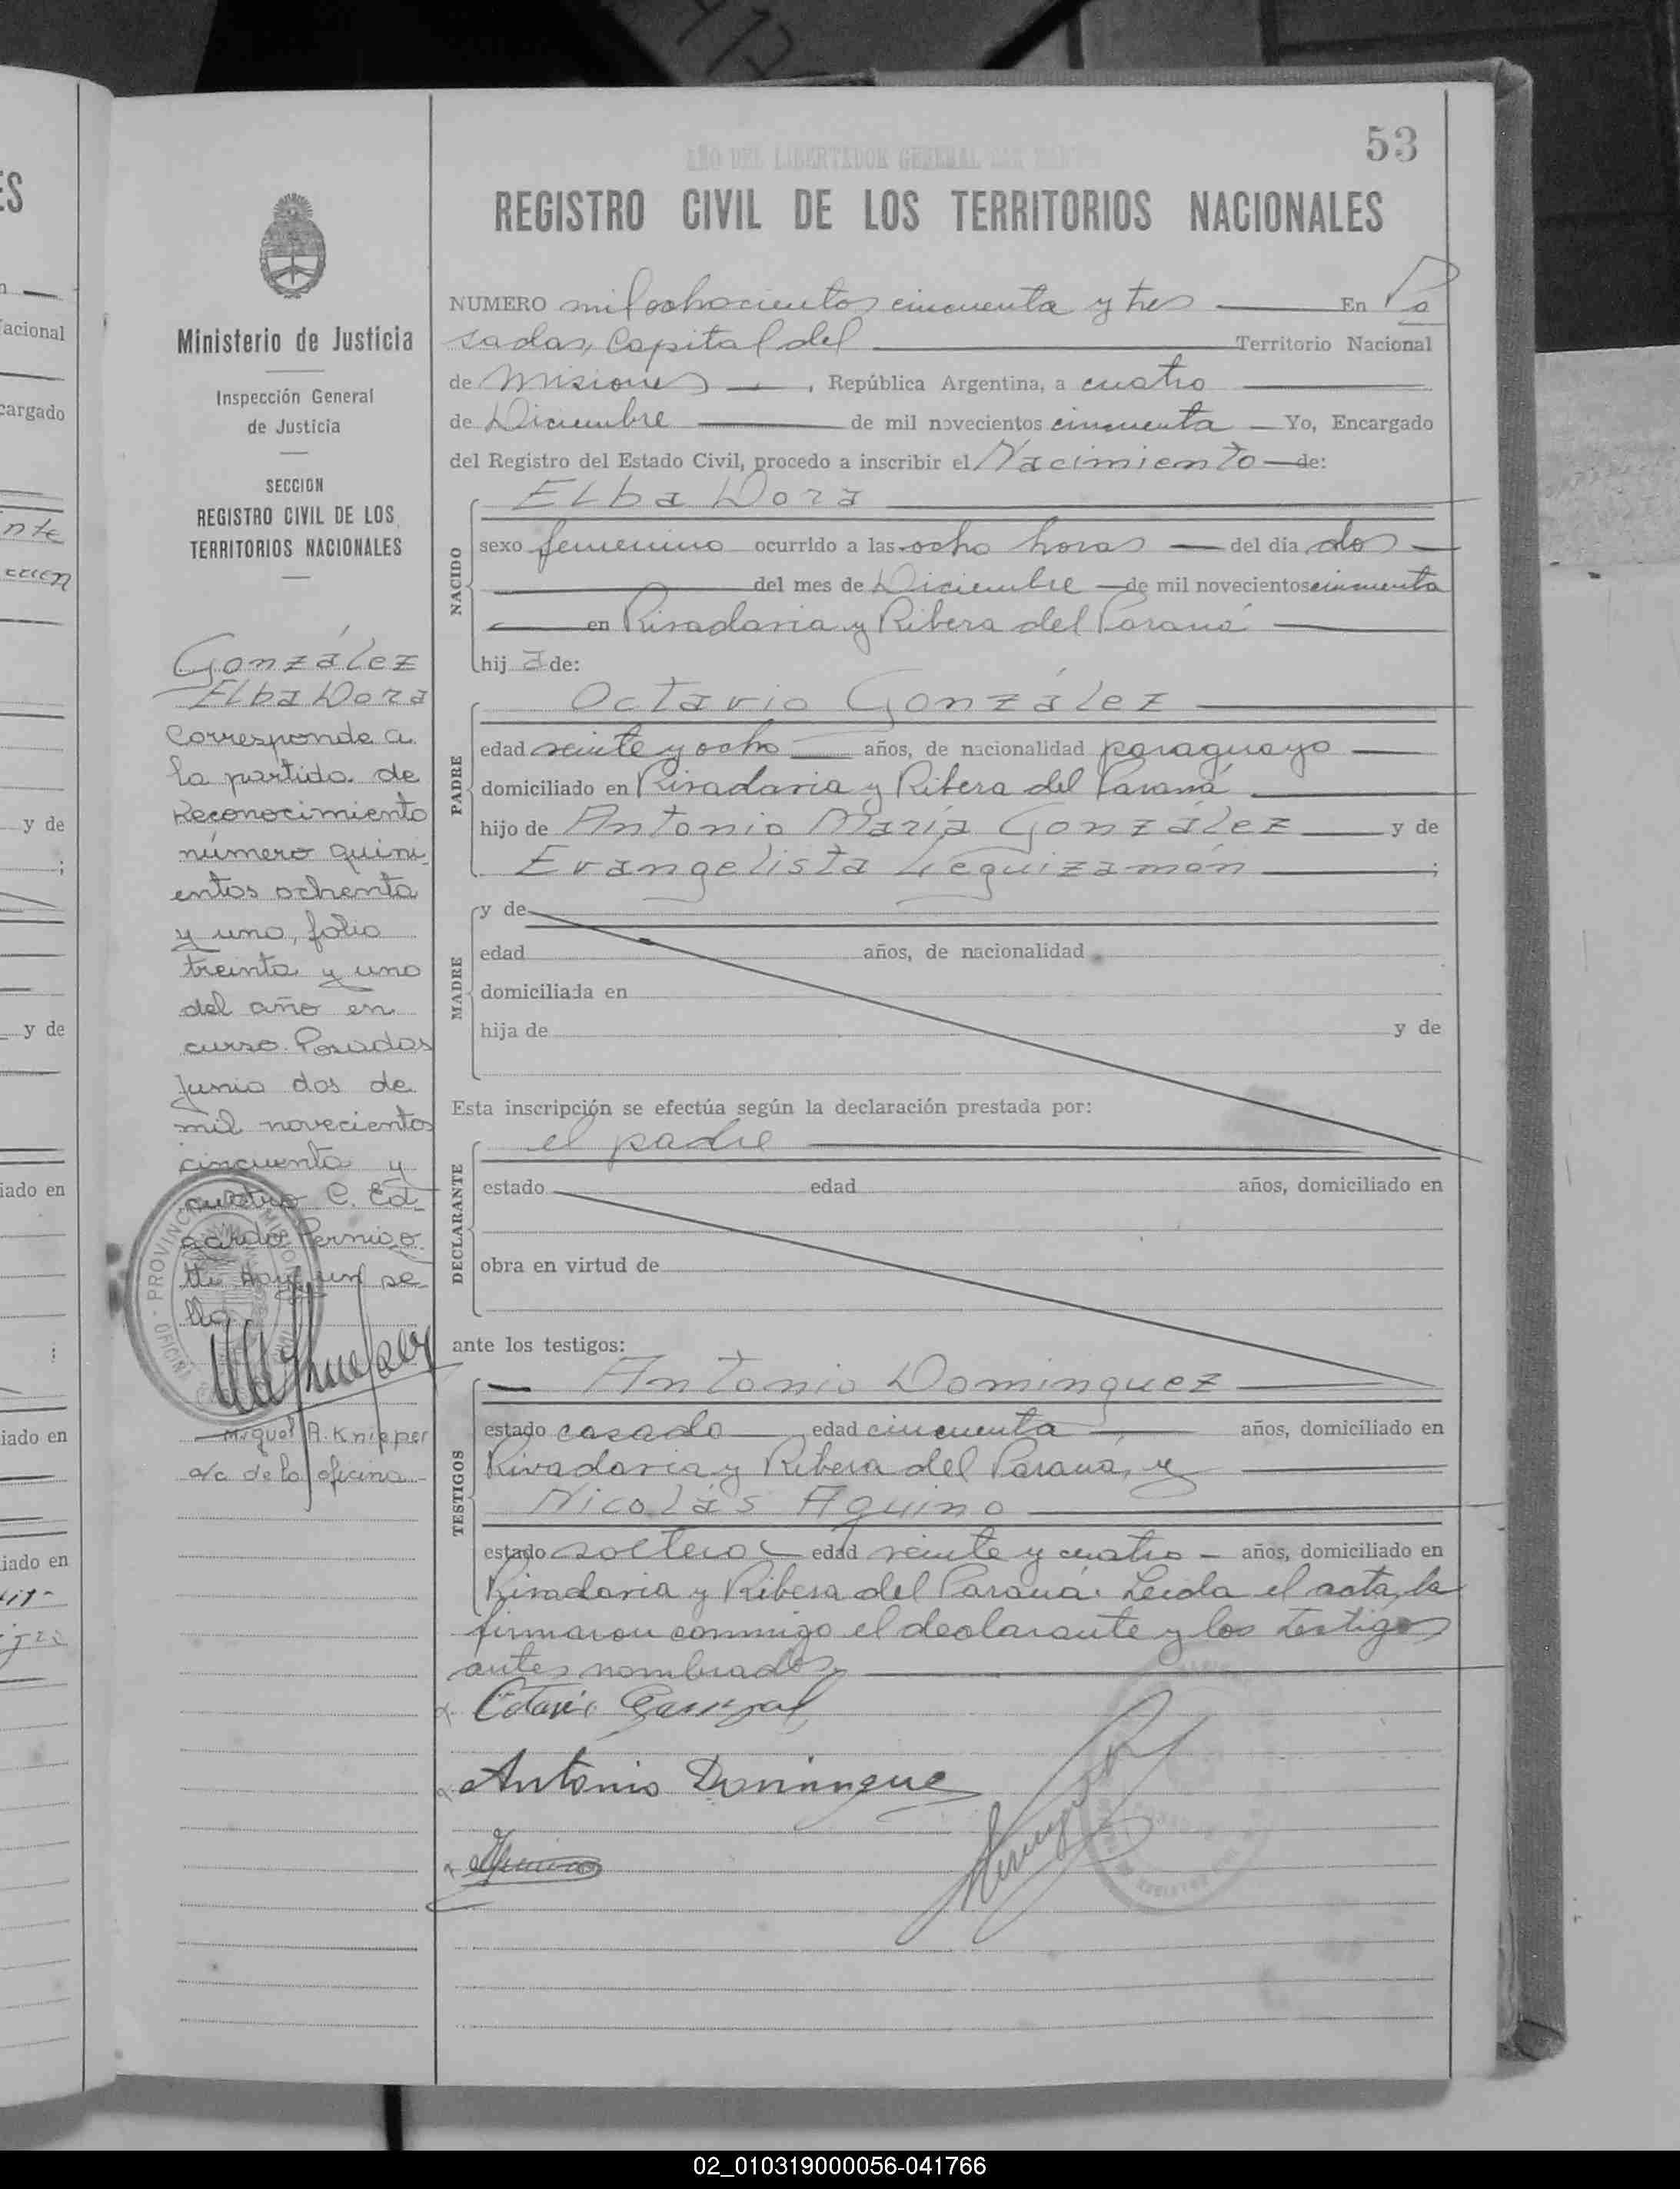 53
AÑO DEL LIBERTADOR GENERAL SAN MARTIN
REGISTRO CIVIL DE LOS TERRITORIOS NACIONALES
Ministerio de Justicia
Inspección General
de Justicia
SECCION
REGISTRO CIVIL DE LOS
TERRITORIOS NACIONALES
González
Elba Dora
Corresponde a
la partida de
Reconocimiento
número quini
entos ochenta
y uno, folio
treinta y uno
del año en
curso. Posadas
Junio dos de
mil novecientos
cincuenta y
cuatro
Hay un se
llo
Miguel A. Knieper
a/c de la oficina
NUMERO mil ochocientos cincuenta y tres En Po
sadas, Capital del Territorio Nacional
de Misiones, República Argentina, a cuatro
de Diciembre de mil novecientos cincuenta Yo, Encargado
del Registro del Estado Civil, procedo a inscribir el Nacimiento de:
NACIDO
Elba Dora
sexo femenino ocurrido a las ocho horas del día dos
del mes de Diciembre de mil novecientos cincuenta
en Rivadavia y Ribera del Paraná
hij a de:
PADRE
Octavio González
edad veinte y ocho años, de nacionalidad paraguayo
domiciliado en Rivadavia y Ribera del Paraná
hijo de Antonio María González y de
Evangelista Leguizamón ;
MADRE
y de
edad años, de nacionalidad
domiciliada en
hija de y de
Esta inscripción se efectúa según la declaración prestada por:
DECLARANTE
el padre
estado edad años, domiciliado en
obra en virtud de
ante los testigos:
TESTIGOS
Antonio Dominguez
estado casado edad cincuenta años, domiciliado en
Rivadavia y Ribera del Paraná, y
Nicolás Aquino
estado soltero edad veinte y cuatro años, domiciliado en
Rivadavia y Ribera del Paraná. Leida el acta, la
firmaron conmigo el declarante y los testigos
antes nombrados
Antonio Dominguez
02_010319000056-041766